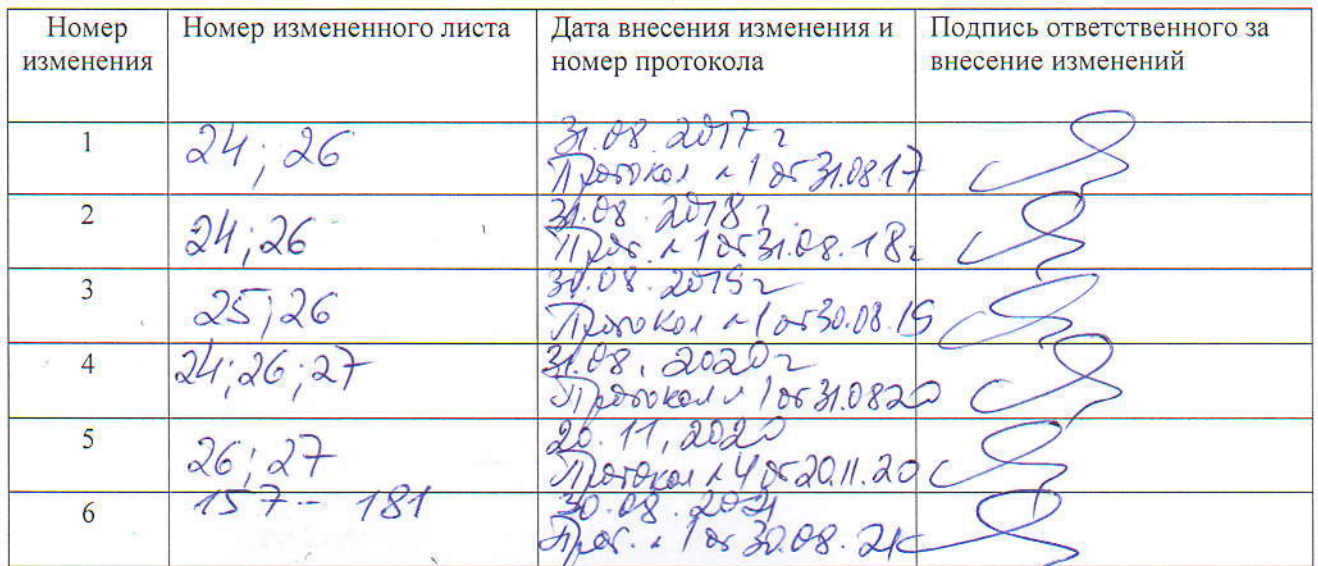 Номер изменения
Номер измененного листа
Дата внесения изменения и номер протокола
Подпись ответственного за внесение изменений
1
24; 26
31.08.2017 г
Протокол №1 от 31.08.17
2
24; 26
31.08.2018 г.
Прот. №1 от 31.08.18г
3
25; 26
30.08.2019 г
Протокол №1 от 30.08.19
4
24; 26; 27
31.08.2020 г
Протокол №1 от 31.0820
5
26; 27
20.11.2020
Протокол №4 от 20.11.20
6
157 - 181
30.08.2021
Прот. №1 от 30.08.21г